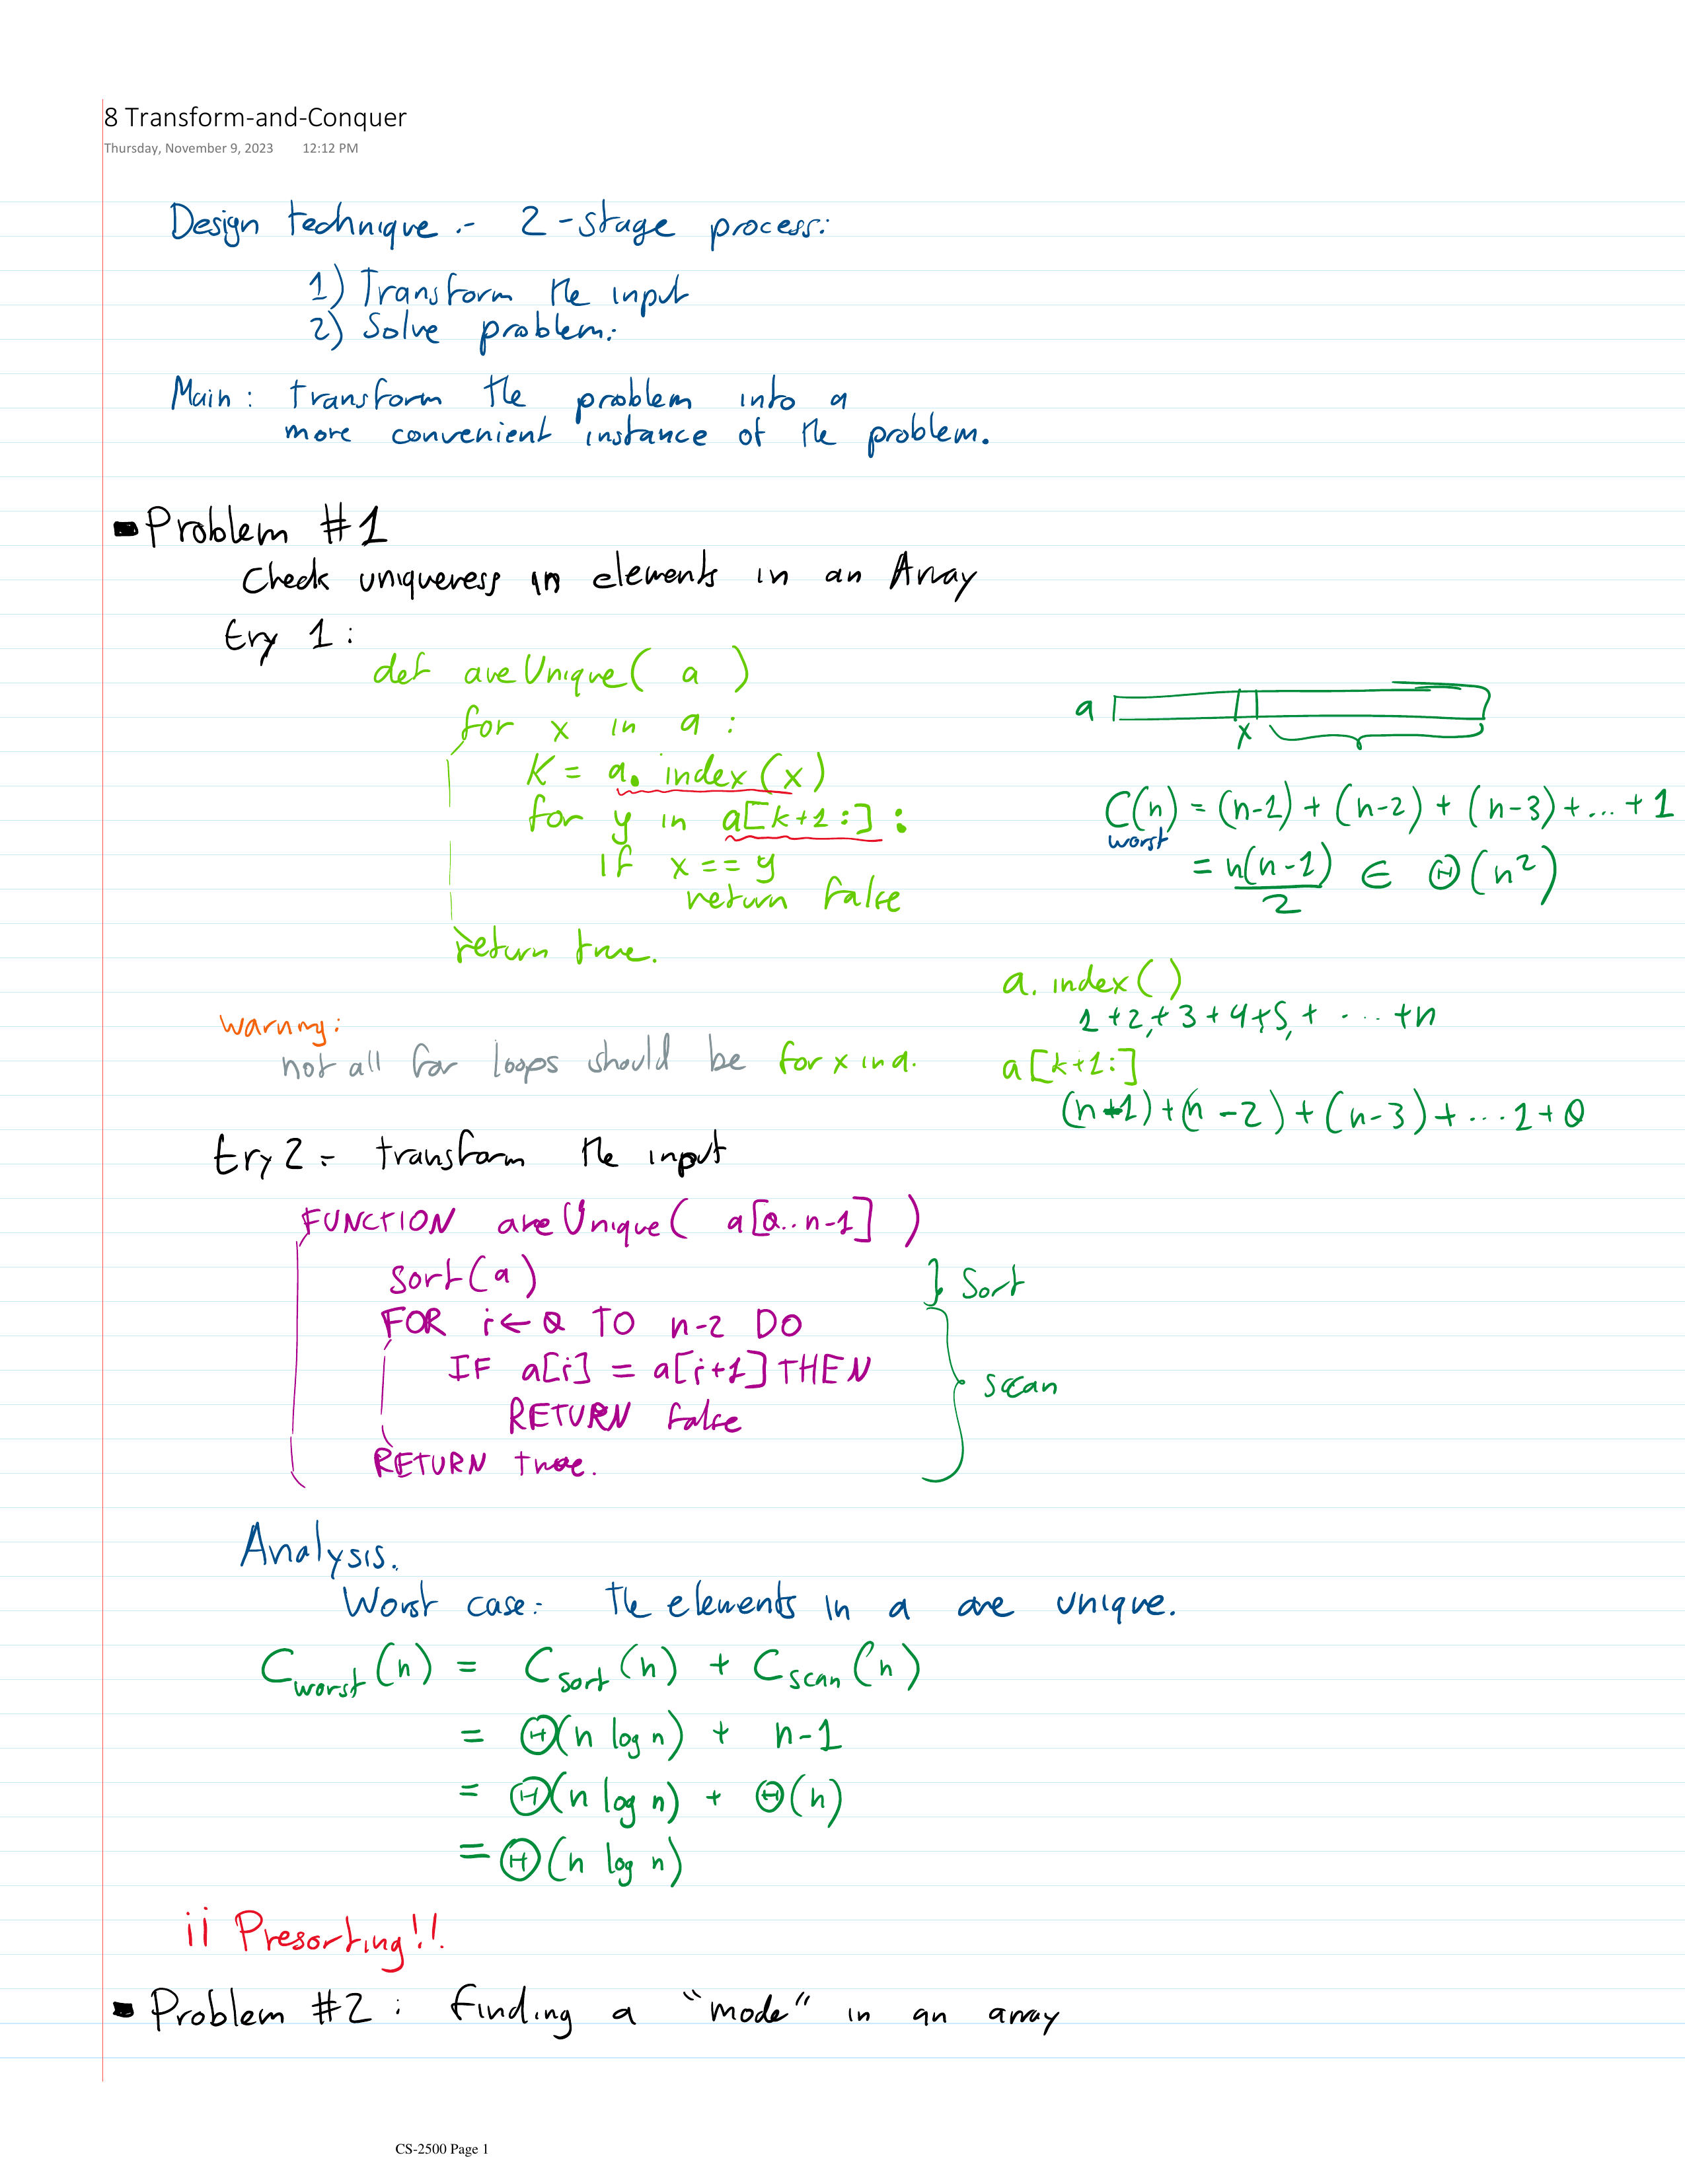 8 Transform-and-Conquer
Thursday, November 9, 2023 12:12 PM
Design technique :- 2-stage process:
1) Transform the input
2) Solve problem.
Main: transform the problem into a
more convenient instance of the problem.
Problem #1
Check uniqueness in elements in an Array
try 1:
def areUnique( a )
for x in a :
K = a. index(x)
for y in a[k+1:] :
if x == y
return false
return true.
a
x
C(n) = (n-1) + (n-2) + (n-3) + ... + 1
worst
= n(n-1)/2 ∈ Θ(n²)
a. index()
1 + 2 + 3 + 4 + 5 + .... + n
a[k+1:]
(n-1) + (n-2) + (n-3) + ... 1 + 0
Warning:
not all for loops should be for x in a.
try 2 :- transform the input
FUNCTION areUnique( a[0..n-1] )
sort(a)
FOR i ← 0 TO n-2 DO
IF a[i] = a[i+1] THEN
RETURN false
RETURN true.
} Sort
} scan
Analysis.
Worst case:- the elements in a are unique.
C worst (n) = C sort (n) + C scan (n)
= Θ(n log n) + n-1
= Θ(n log n) + Θ(n)
= Θ(n log n)
¡¡ Presorting!!
Problem #2 : finding a "mode" in an array
CS-2500 Page 1